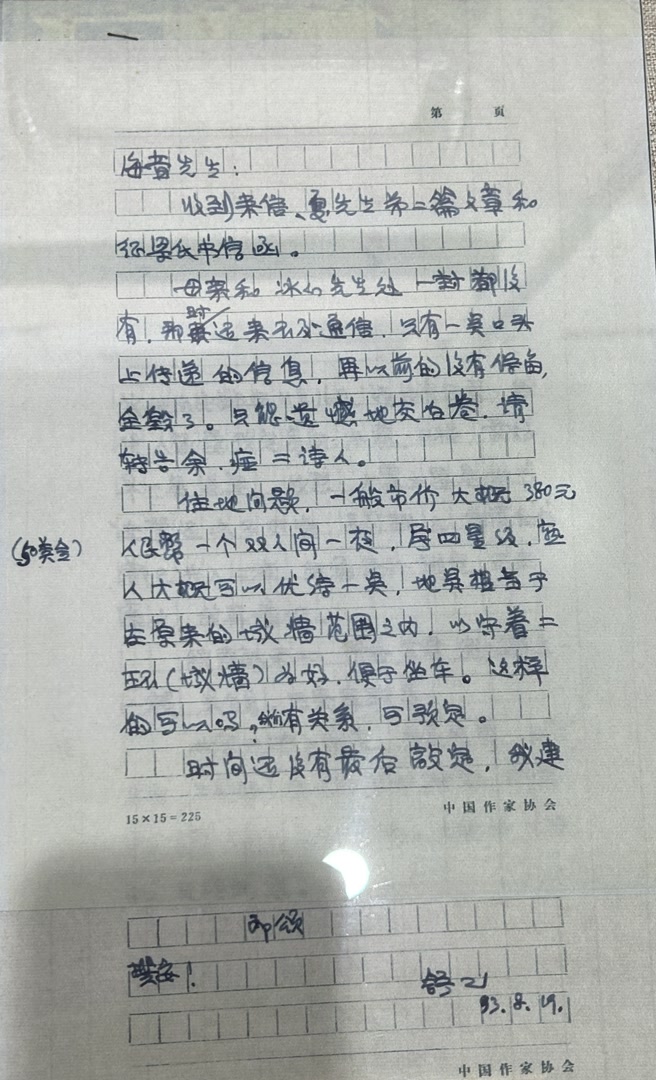 第 页
海音先生：
收到来信、夏先生第二篇文章和
征梁氏书信函。
母亲和冰心先生处一封都没
有，那时还未及通信，只有一点口头
上传递的信息，再以前的没有保留，
全毁了。只能遗憾地交白卷，请
转告余、症二诗人。
住地问题，一般市价大概380元
(50美金)
人民币一个双人间一夜，属四星级，熟
人大概可以优待一点，地点相当于
在原来的城墙范围之内，以守着二
环(城墙)为好，便于坐车。这样
的可以吗？有关系，可预定。
时间还没有最后设定，我建
15×15=225
中国作家协会
即颂
安！
舒乙
93.8.19.
中国作家协会